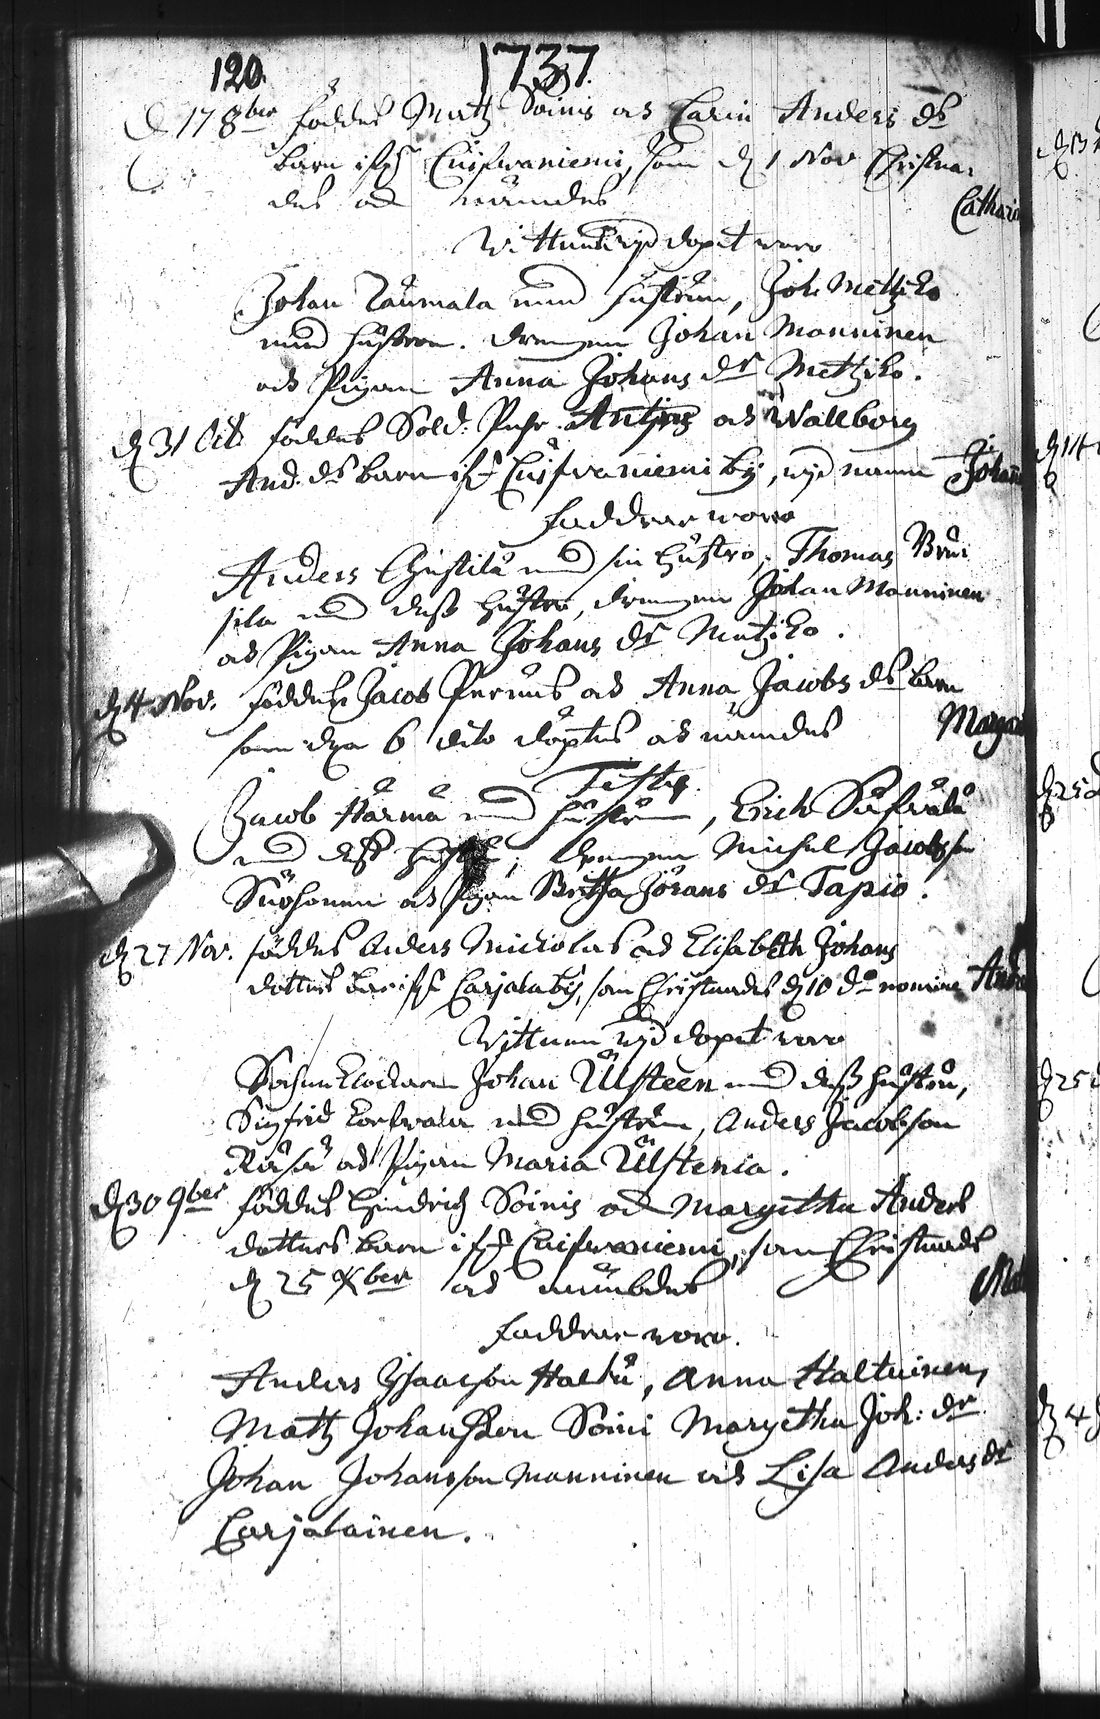 120. 1737.
d 17 8ber föddes Matz Soinis och Carin Anders dr
barn ifrå Cuifwaniemi, som d 1 Nov Christna:
des och nämdes Cathari
Wittnen wijd dopet woro
Johan Raumala med hustrun, Joh. Metziko
med hustron. drengen Johan Manninen
och Pigan Anna Johans dr Metziko.
d 31 Oct. föddes Sold: Pehr Antjus och Wallborg
And. dr barn ifr Cuifwaniemi by, wid namn Johan
Faddrar woro
Anders med sin hustro, Thomas Brui
sila med dess hustro, drengen Johan Manninen
och Pigan Anna Johans dr Metziko.
d 4 Nov. föddes Jacob Pernus och Anna Jacobs dr barn
som den 6 dito döptes och nämdes Margar
Testes
Jacob Härmä med hustrun, Erich
med dess hustru, drengen Michel Jacobsson
och Pigan Britha Jörans dr Tapio.
d 27 Nov. föddes Anders Nickolas och Elisabeth Johans
dotters barn ifr Carjalaby, som Christnades d 10 do nomine And
Wittnen wijd dopet woro
Sochne Klockaren Johan Ulsteen med dess hustru,
Sigfrid med hustrun, Anders Jacobsson
och Pigan Maria Ulstenia.
d 30 9ber föddes Hindrich Soinis och Margetha Anders
dotters barn ifr Cuifwaniemi, som Christnades
d 25 Xber och nämdes Mat
Faddrar woro.
Anders Isaacson Haltu, Anna Haltuinen,
Matz Johansson Soini Margetha Joh: dr
Johan Johansson Manninen och Lisa Anders dr
Carjalainen.